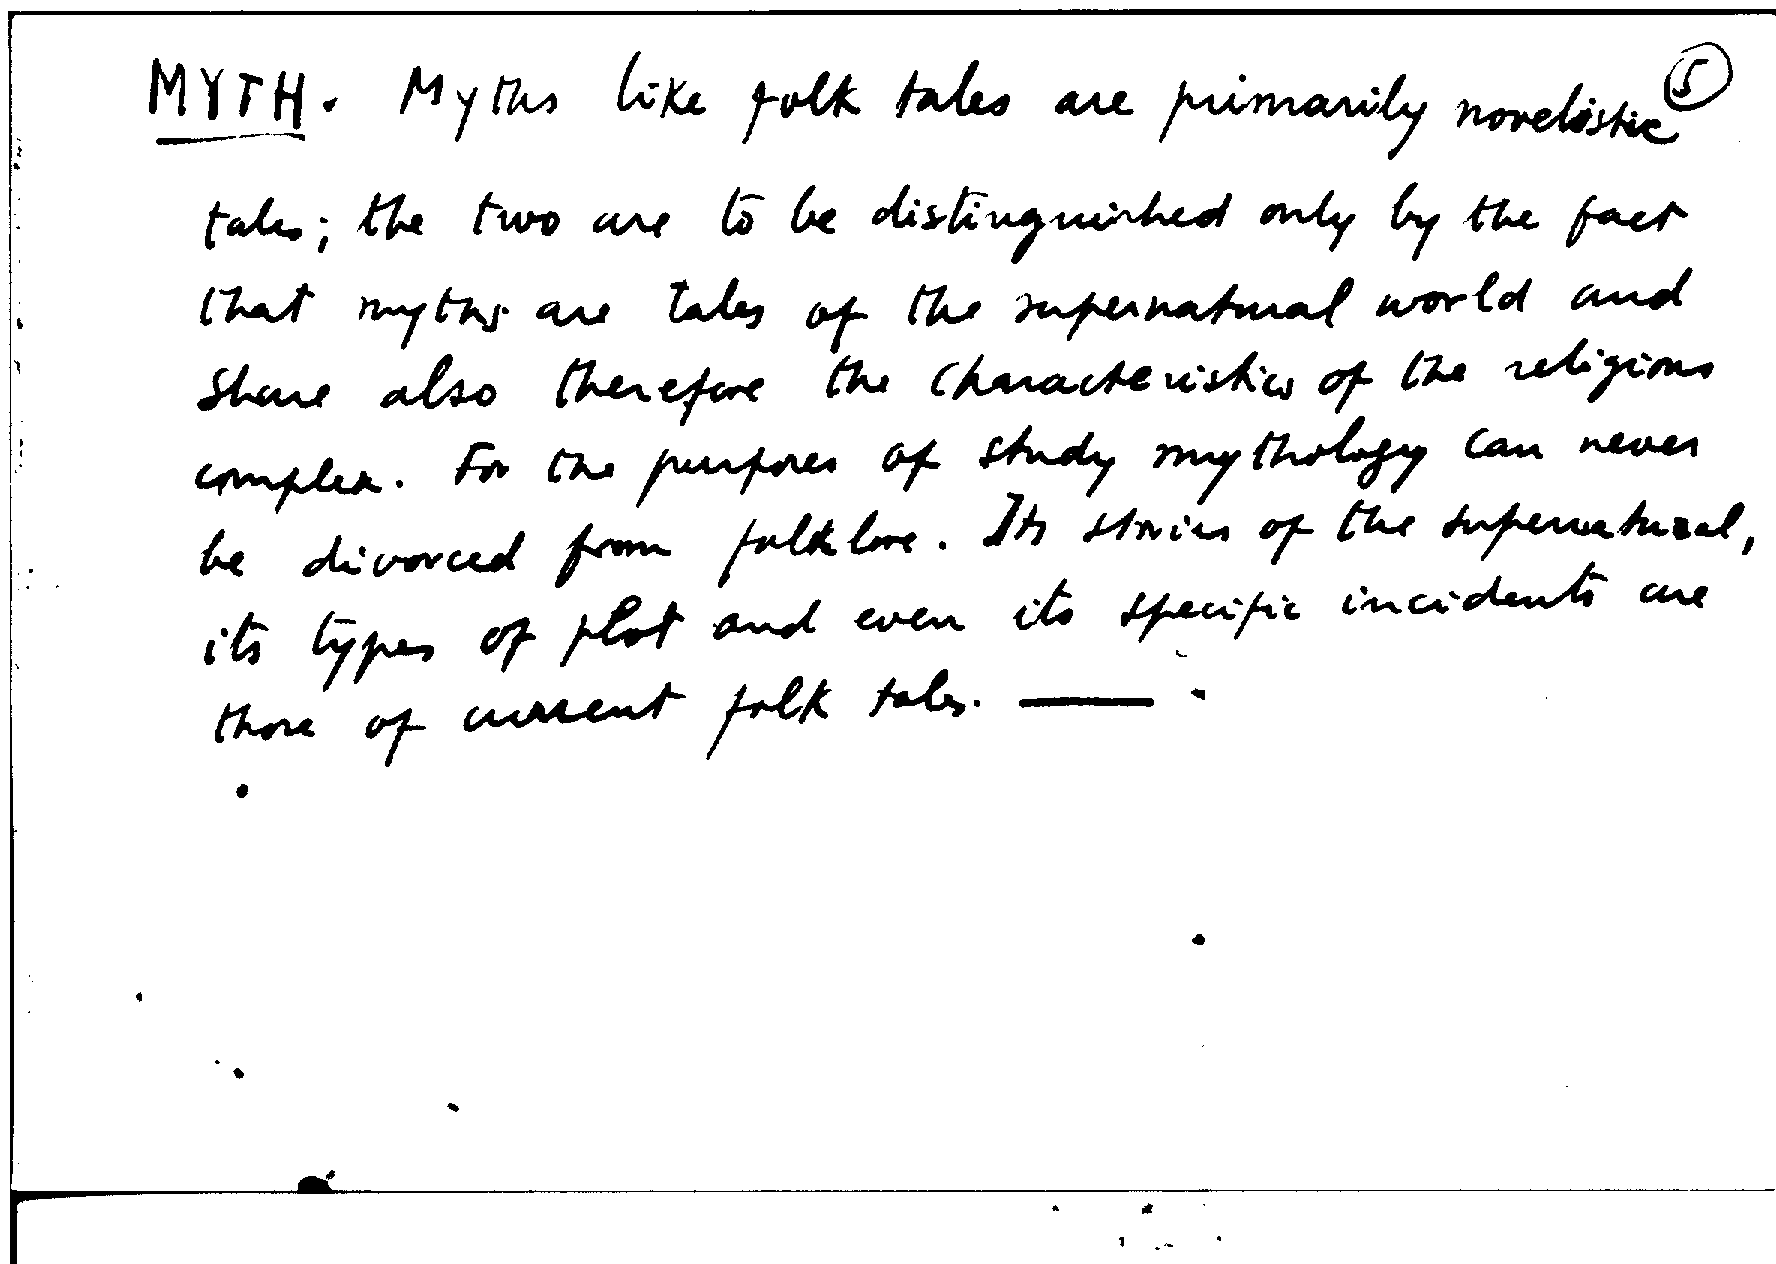 ⑤
MYTH. Myths like folk tales are primarily novelistic
tales; the two are to be distinguished only by the fact
that myths are tales of the supernatural world and
share also therefore the characteristics of the religious
complex. For the purposes of study mythology can never
be divorced from folklore. Its stories of the supernatural,
its types of plot and even its specific incidents are
those of current folk tales. —